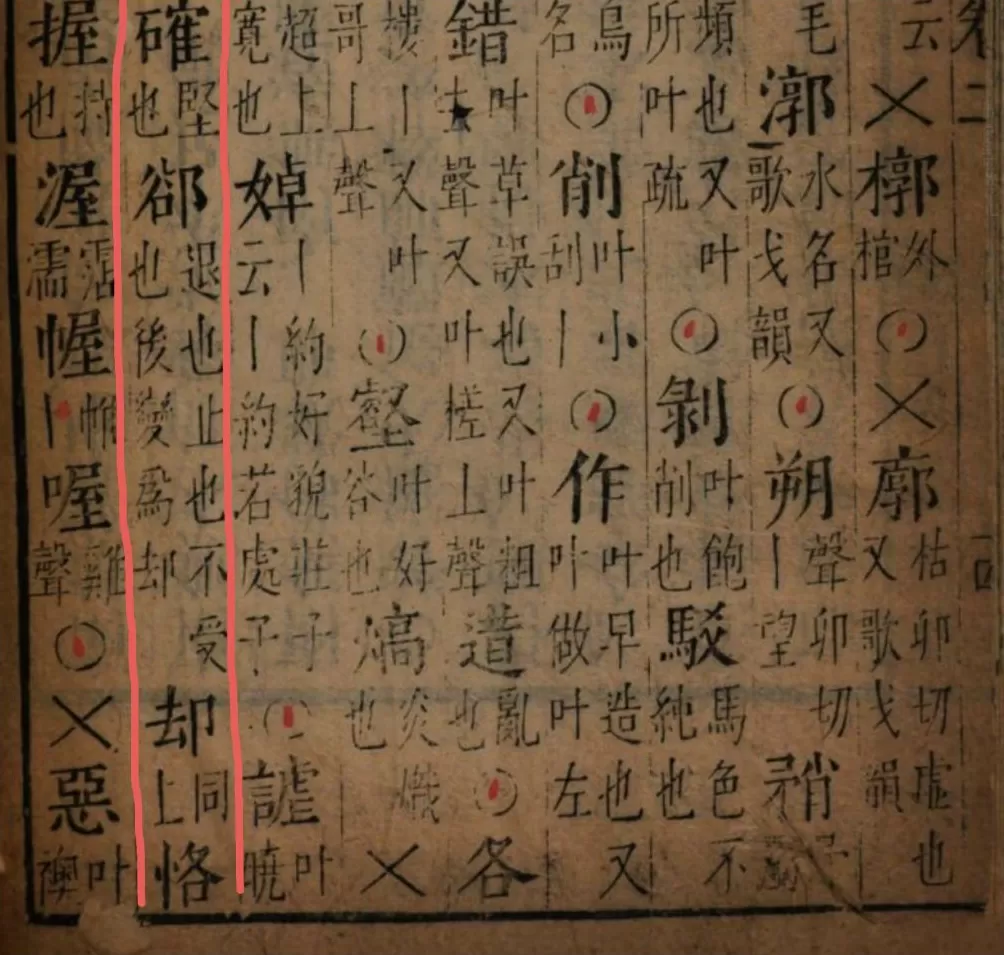 卷二
云 × 槨 外棺 ○ × 廓 枯卯切虛也又歌戈韻
毛 漷 水名又歌戈韻 ○ 朔 聲卯切丨望 矟
頻也又叶所叶疏 ○ 剝 叶飽削也 駁 馬色不純也
鳥名 ○ 削 叶小刮丨 ○ 作 叶早造也又叶做叶左
錯 叶草誤也又叶粗去聲又叶槎上聲 逪 亂也 ○ 各
樓丨又叶哥上聲 ○ 壑 叶好谷也 熇 炎熾也 ×
超上寬也 婥 丨約好貌莊子云丨約若處子 ○ 謔 叶曉
確 堅也 卻 退也止也不受也後變爲却 却 同上 恪
握 持也 渥 霑濡 幄 帷丨 喔 雞聲 ○ × 惡 叶襖